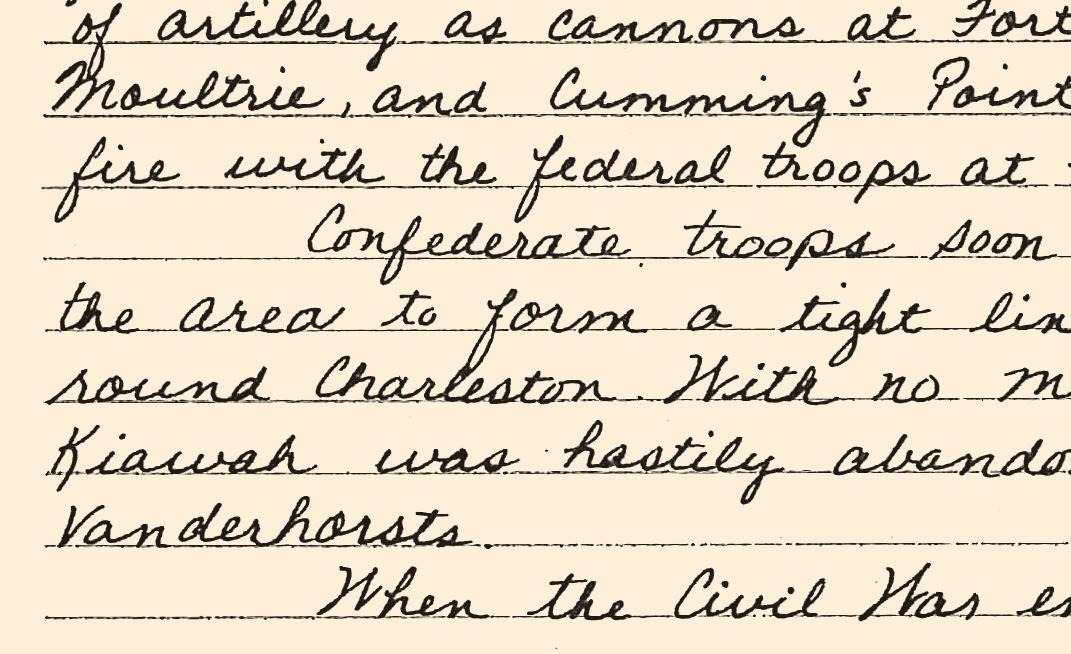 of artillery as cannons at Fort
Moultrie, and Cumming's Point
fire with the federal troops at
Confederate troops soon
the area to form a tight lin
round Charleston. With no m
Kiawah was hastily abando
Vanderhorsts.
When the Civil War en